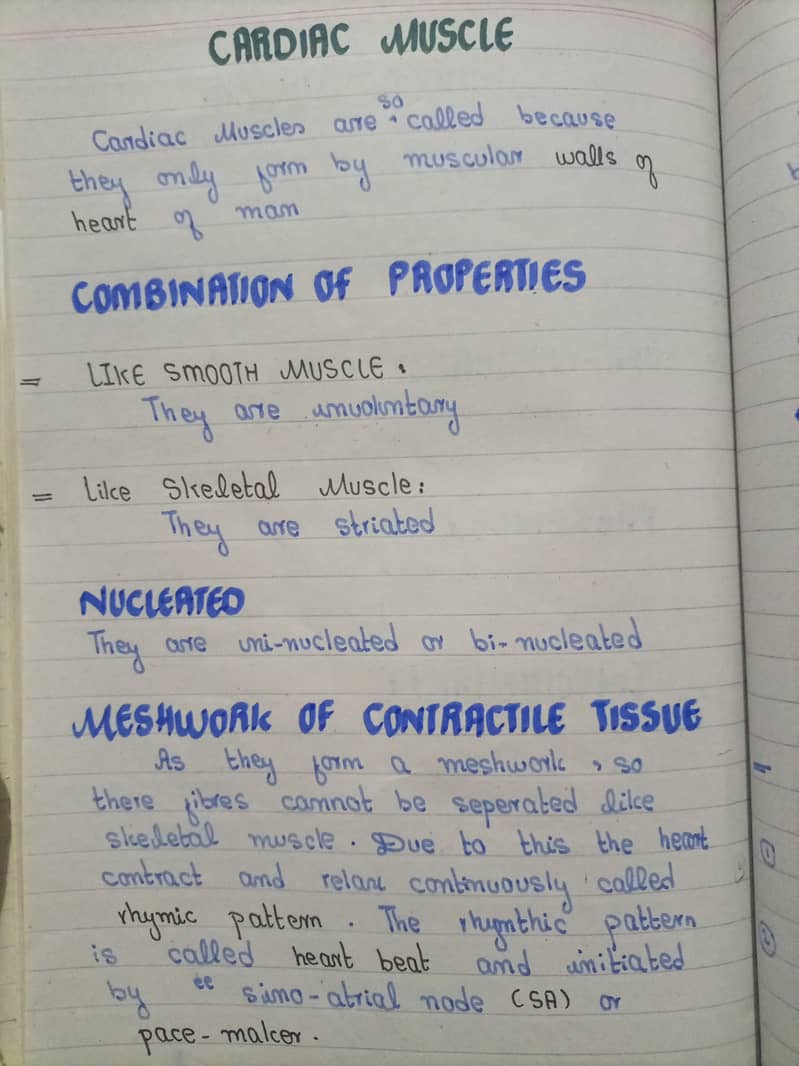 CARDIAC MUSCLE
so
Cardiac Muscles are ‸ called because
they only form by muscular walls of
heart of man
COMBINATION OF PROPERTIES
= LIKE SMOOTH MUSCLE :
They are unvoluntary
= Like Skeletal Muscle :
They are striated
NUCLEATED
They are uni-nucleated or bi-nucleated
MESHWORK OF CONTRACTILE TISSUE
As they form a meshwork , so
there fibres cannot be seperated like
skeletal muscle . Due to this the heart
contract and relax continuously called
rhymic pattern . The rhymthic pattern
is called heart beat and initiated
by “ sino-atrial node (SA) or
pace-maker .
1
2